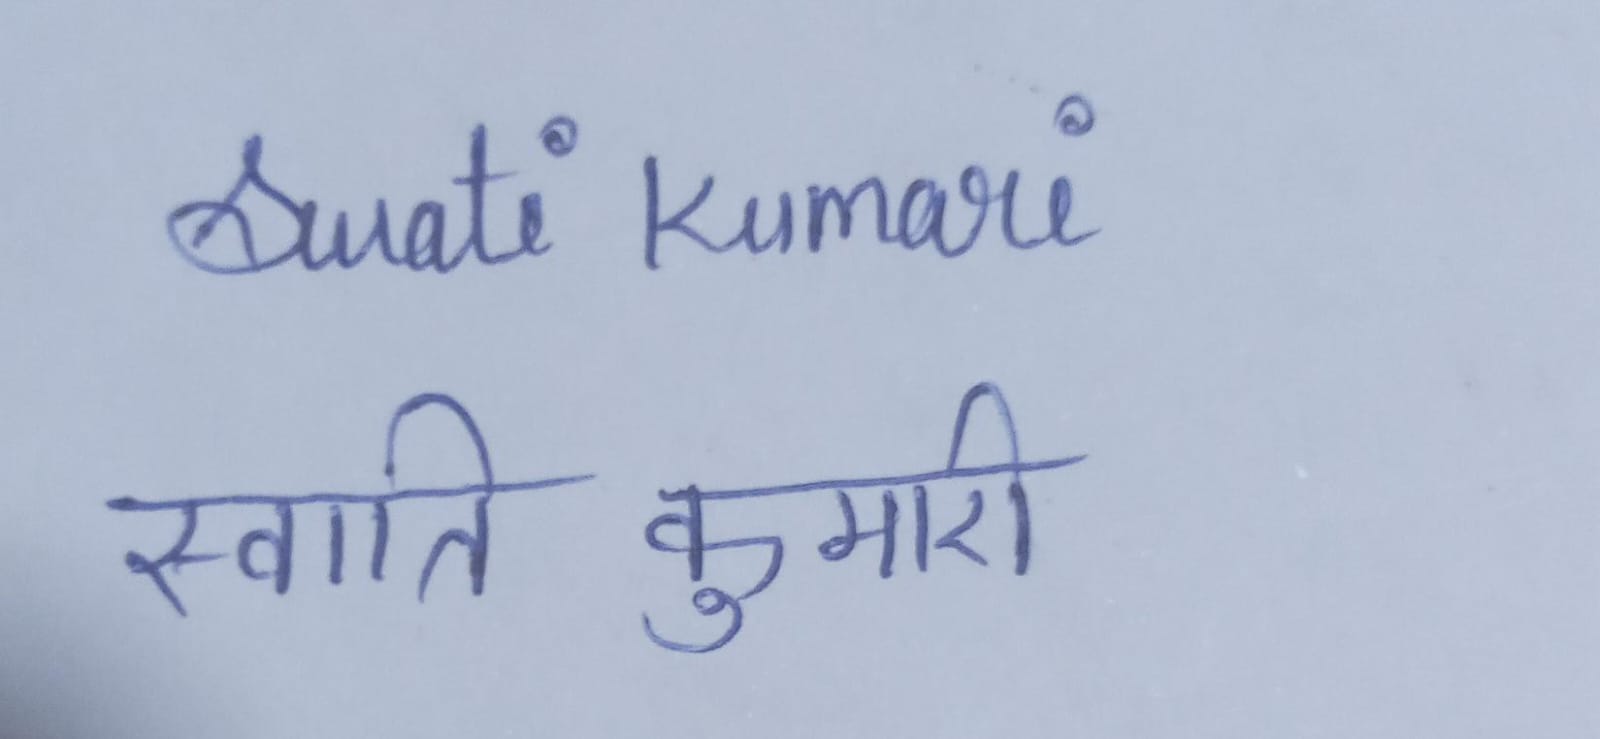 Swati Kumari
स्वाति कुमारी